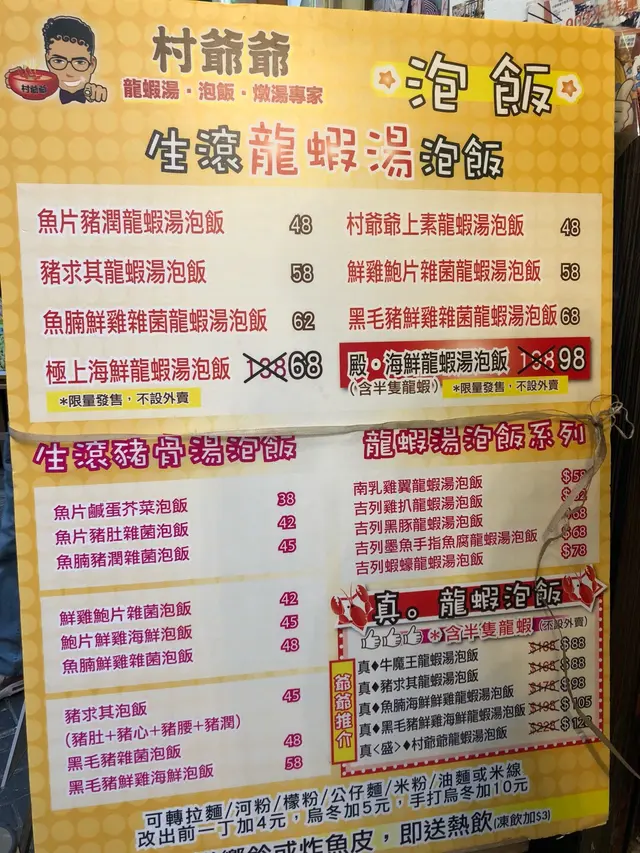 村爺爺
村爺爺
龍蝦湯・泡飯・燉湯專家
泡飯
生滾龍蝦湯泡飯
魚片豬潤龍蝦湯泡飯 48
豬求其龍蝦湯泡飯 58
魚腩鮮雞雜菌龍蝦湯泡飯 62
極上海鮮龍蝦湯泡飯 68
*限量發售，不設外賣
村爺爺上素龍蝦湯泡飯 48
鮮雞鮑片雜菌龍蝦湯泡飯 58
黑毛豬鮮雞雜菌龍蝦湯泡飯 68
殿・海鮮龍蝦湯泡飯 98
(含半隻龍蝦) *限量發售，不設外賣
生滾豬骨湯泡飯
魚片鹹蛋芥菜泡飯 38
魚片豬肚雜菌泡飯 42
魚腩豬潤雜菌泡飯 45
鮮雞鮑片雜菌泡飯 42
鮑片鮮雞海鮮泡飯 45
魚腩鮮雞雜菌泡飯 48
豬求其泡飯 45
(豬肚+豬心+豬腰+豬潤)
黑毛豬雜菌泡飯 48
黑毛豬鮮雞海鮮泡飯 58
龍蝦湯泡飯系列
南乳雞翼龍蝦湯泡飯
吉列雞扒龍蝦湯泡飯
吉列黑豚龍蝦湯泡飯
吉列墨魚手指魚腐龍蝦湯泡飯 $68
吉列蝦蠔龍蝦湯泡飯 $78
真。龍蝦泡飯
*含半隻龍蝦 (不設外賣)
爺爺推介
真♦牛魔王龍蝦湯泡飯 $88
真♦豬求其龍蝦湯泡飯 $88
真♦魚腩海鮮鮮雞龍蝦湯泡飯 $98
真♦黑毛豬鮮雞海鮮龍蝦湯泡飯 $105
真<盛>♦村爺爺龍蝦湯泡飯
可轉拉麵/河粉/檬粉/公仔麵/米粉/油麵或米線
改出前一丁加4元，烏冬加5元，手打烏冬加10元
或炸魚皮，即送熱飲(凍飲加$3)